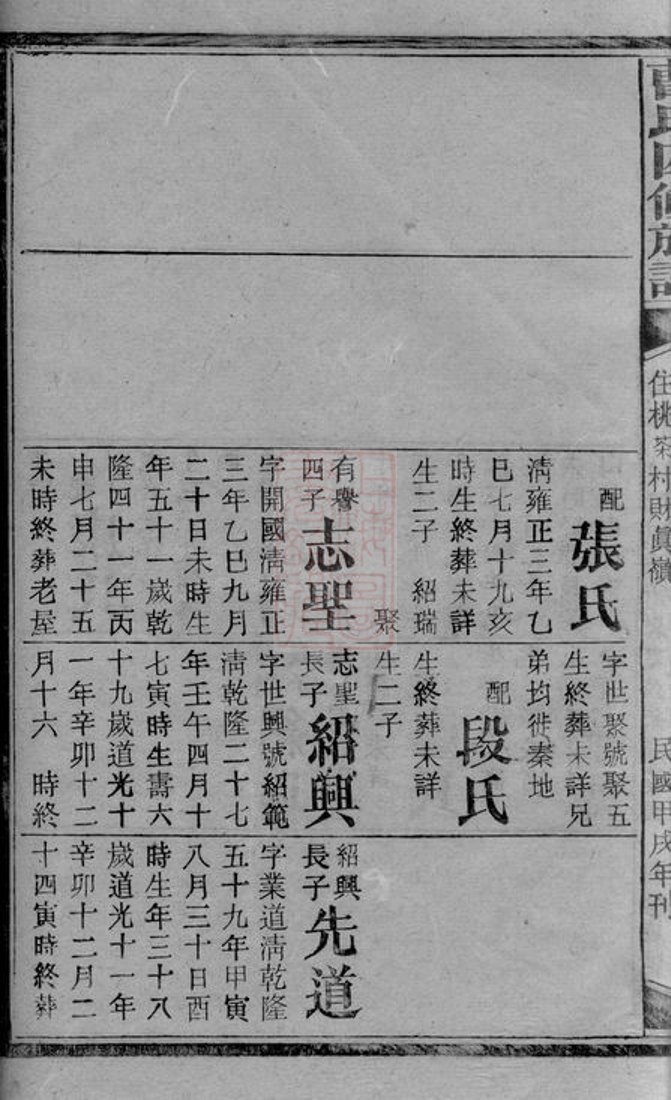 曹氏四修族譜
住桃谷村財眞嶺
民國甲戌年刊
配張氏
淸雍正三年乙
巳七月十九亥
時生終葬未詳
生二子　紹瑞
聚
有譽
四子志聖
字開國淸雍正
三年乙巳九月
二十日未時生
年五十一歲乾
隆四十一年丙
申七月二十五
未時終葬老屋
字世聚號聚五
生終葬未詳兄
弟均徙秦地
配段氏
生終葬未詳
生二子
志聖
長子紹興
字世興號紹範
淸乾隆二十七
年壬午四月十
七寅時生壽六
十九歲道光十
一年辛卯十二
月十六　時終
紹興
長子先道
字業道淸乾隆
五十九年甲寅
八月三十日酉
時生年三十八
歲道光十一年
辛卯十二月二
十四寅時終葬